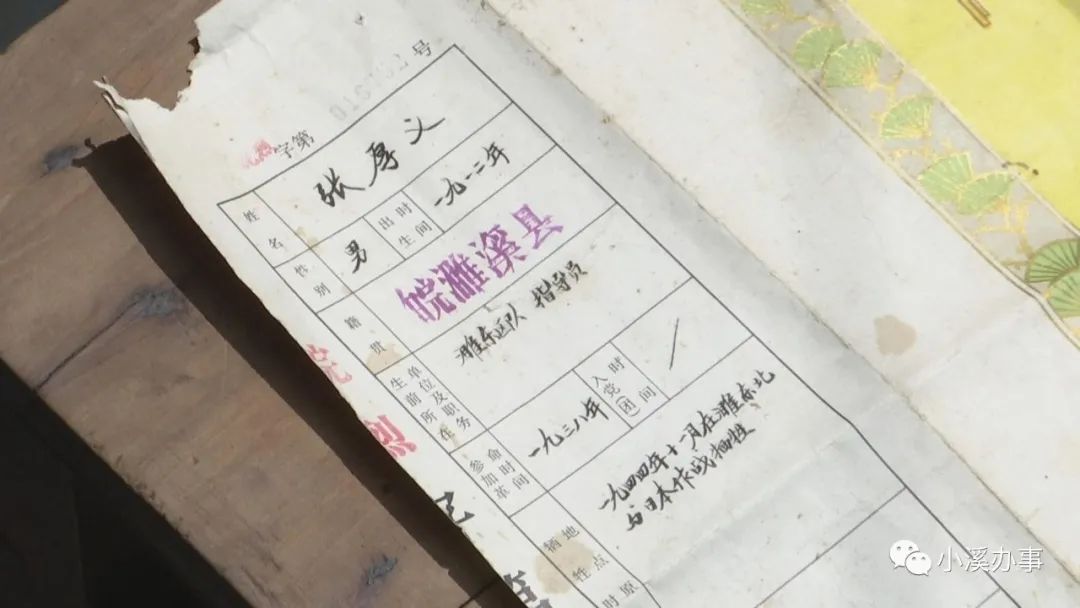 字第 号
姓名 张厚义
性别 男 出生时间 一九一三年
籍贯 皖濉溪县
生前所在单位及职务 濉东区队 指导员
参加革命时间 一九三八年 入党(团)时间 /
牺牲时 地点 原 一九四四年十一月在濉东北
与日本作战牺牲
皖
烈
小溪办事